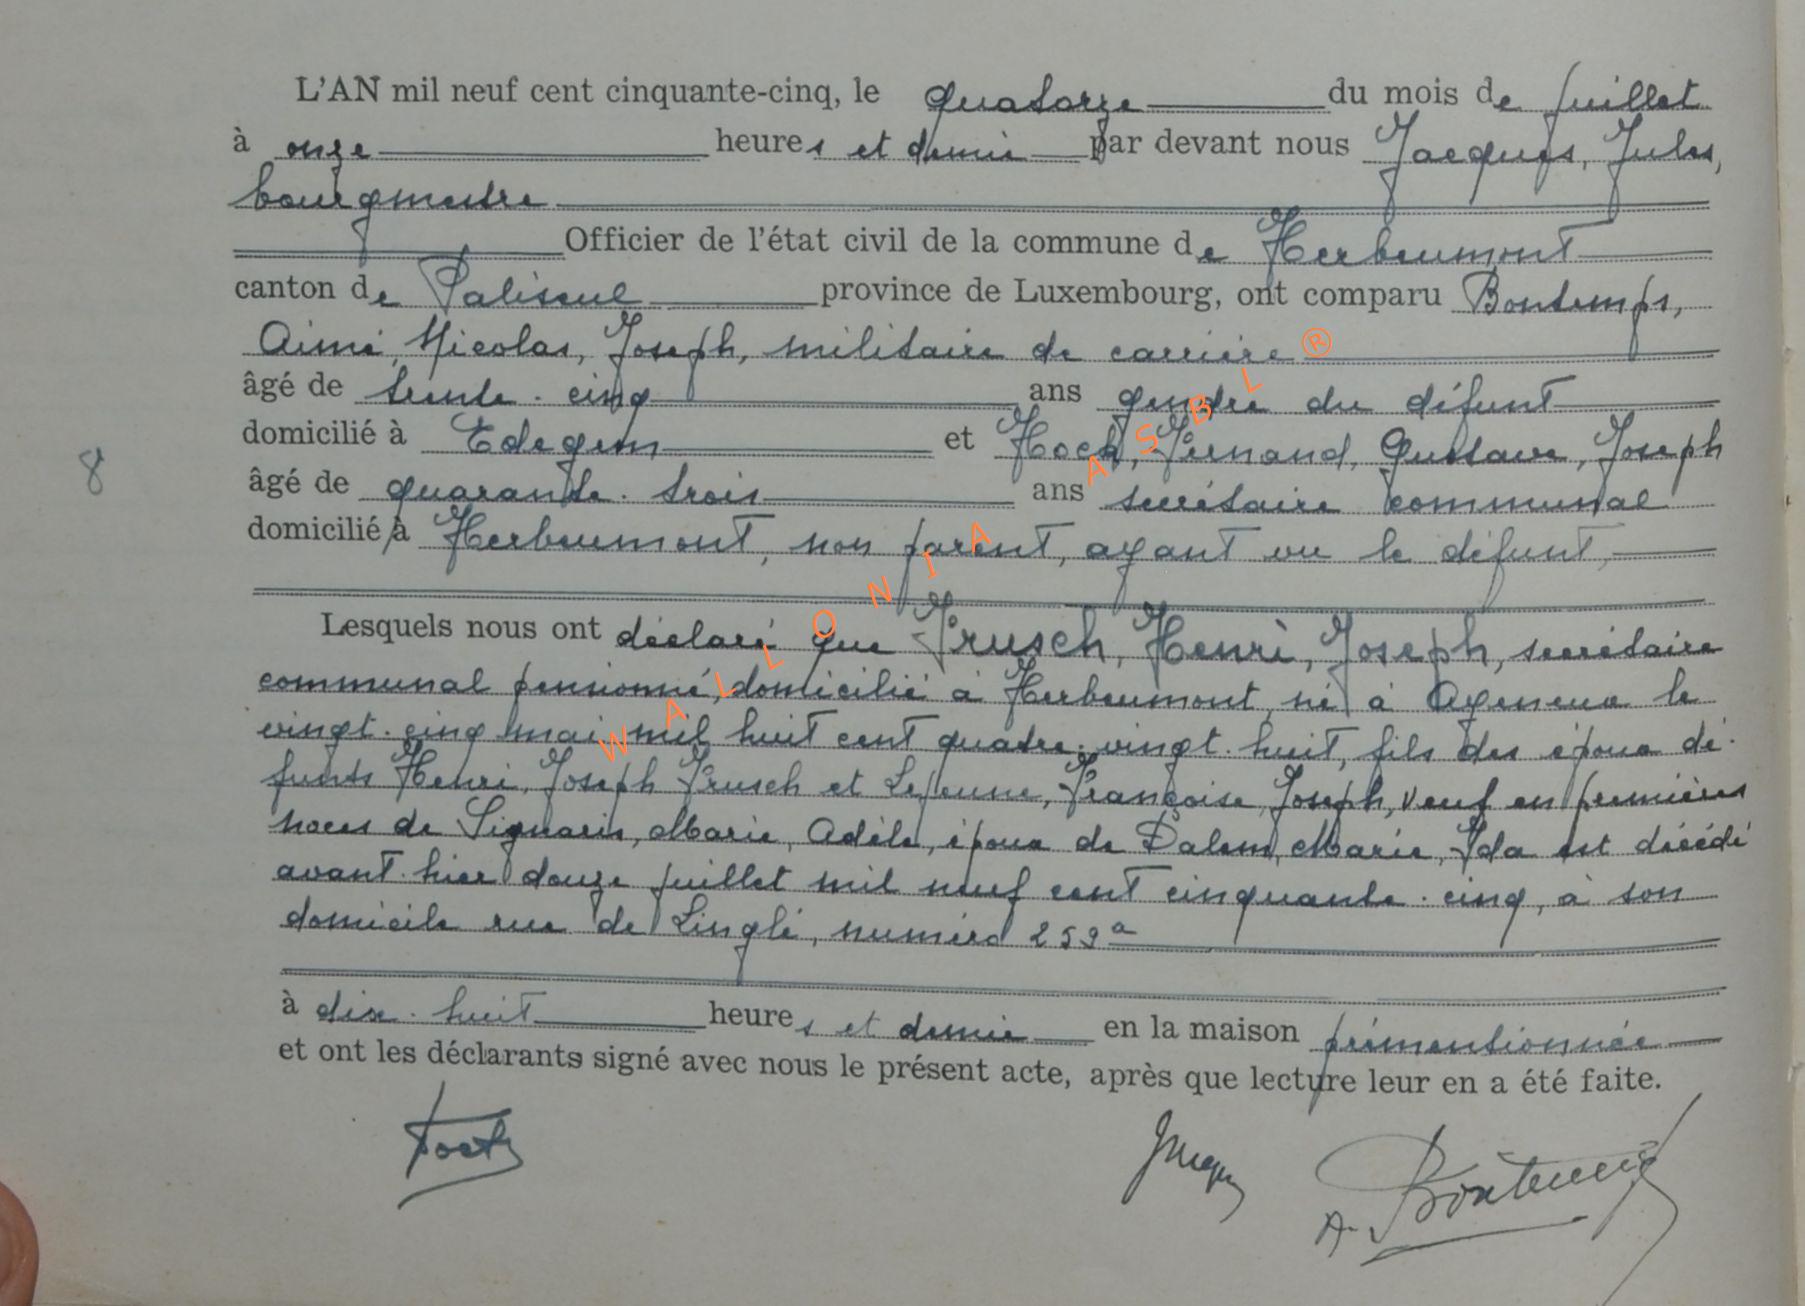 L'AN mil neuf cent cinquante-cinq, le quatorze du mois de juillet
à onze heures et demie par devant nous Jacques, Jules,
bourgmestre
Officier de l'état civil de la commune de Herbeumont
canton de Paliseul province de Luxembourg, ont comparu Bontemps,
Aimé, Nicolas, Joseph, militaire de carrière ®
âgé de trente-cinq ans gendre du défunt
domicilié à Edegem et Hoch, Fernand, Gustave, Joseph
8
âgé de quarante-trois ans secrétaire communal
domicilié à Herbeumont, non parent, ayant vu le défunt,
WALLONIA ASBL
Lesquels nous ont déclaré que Frusch, Henri, Joseph, secrétaire
communal pensionné, domicilié à Herbeumont, né à Ayeneux le
vingt-cinq mai mil huit cent quatre-vingt-huit, fils des époux dé-
funts Henri, Joseph Frusch et Lejeune, Françoise, Joseph, veuf en premières
noces de Marie, Adèle, époux de Dalem, Marie, Ida est décédé
avant-hier douze juillet mil neuf cent cinquante-cinq, à son
domicile rue de Linglé, numéro 259a
à dix-huit heures et demie en la maison prémentionnée
et ont les déclarants signé avec nous le présent acte, après que lecture leur en a été faite.
A. Bontemps